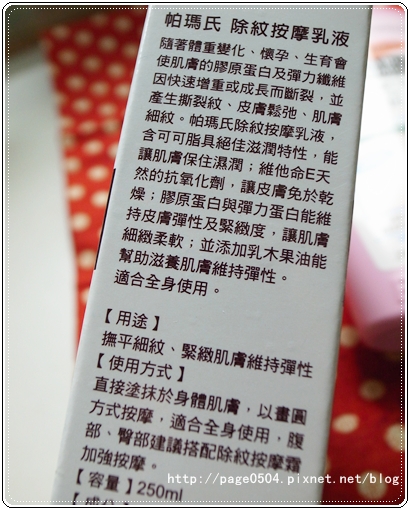 帕瑪氏 除紋按摩乳液
隨著體重變化、懷孕、生育會
使肌膚的膠原蛋白及彈力纖維
因快速增重或成長而斷裂，並
產生撕裂紋、皮膚鬆弛、肌膚
細紋。帕瑪氏除紋按摩乳液，
含可可脂具絕佳滋潤特性，能
讓肌膚保住濕潤；維他命E天
然的抗氧化劑，讓皮膚免於乾
燥；膠原蛋白與彈力蛋白能維
持皮膚彈性及緊緻度，讓肌膚
細緻柔軟；並添加乳木果油能
幫助滋養肌膚維持彈性。
適合全身使用。
【用途】
撫平細紋、緊緻肌膚維持彈性
【使用方式】
直接塗抹於身體肌膚，以畫圓
方式按摩，適合全身使用，腹
部、臀部建議搭配除紋按摩霜
加強按摩。
【容量】250ml
http://page0504.pixnet.net/blog